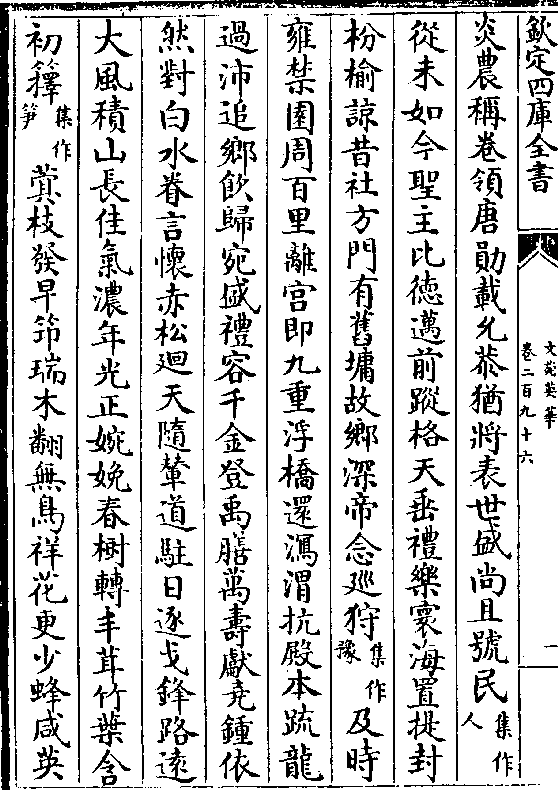 欽定四庫全書
文苑英華
卷二百九十六
一
炎農稱卷領唐勛載允恭猶將表世盛尚且號民集作人
從未如今聖主比德邁前蹤格天垂禮樂寰海置提封
枌榆諒昔社方門有舊墉故鄉深帝念巡狩集作豫及時
雍禁園周百里離宫即九重浮橋還瀉渭抗殿本疏龍
過沛追鄉飲歸宛盛禮容千金登禹膳萬壽獻堯鍾依
然對白水眷言懷赤松廻天隨輦道駐日逐戈鋒路遠
大風積山長佳氣濃年光正婉娩春樹轉丰茸竹葉含
初籜集作笋蓂枝發早節瑞木翻無鳥祥花更少蜂咸英